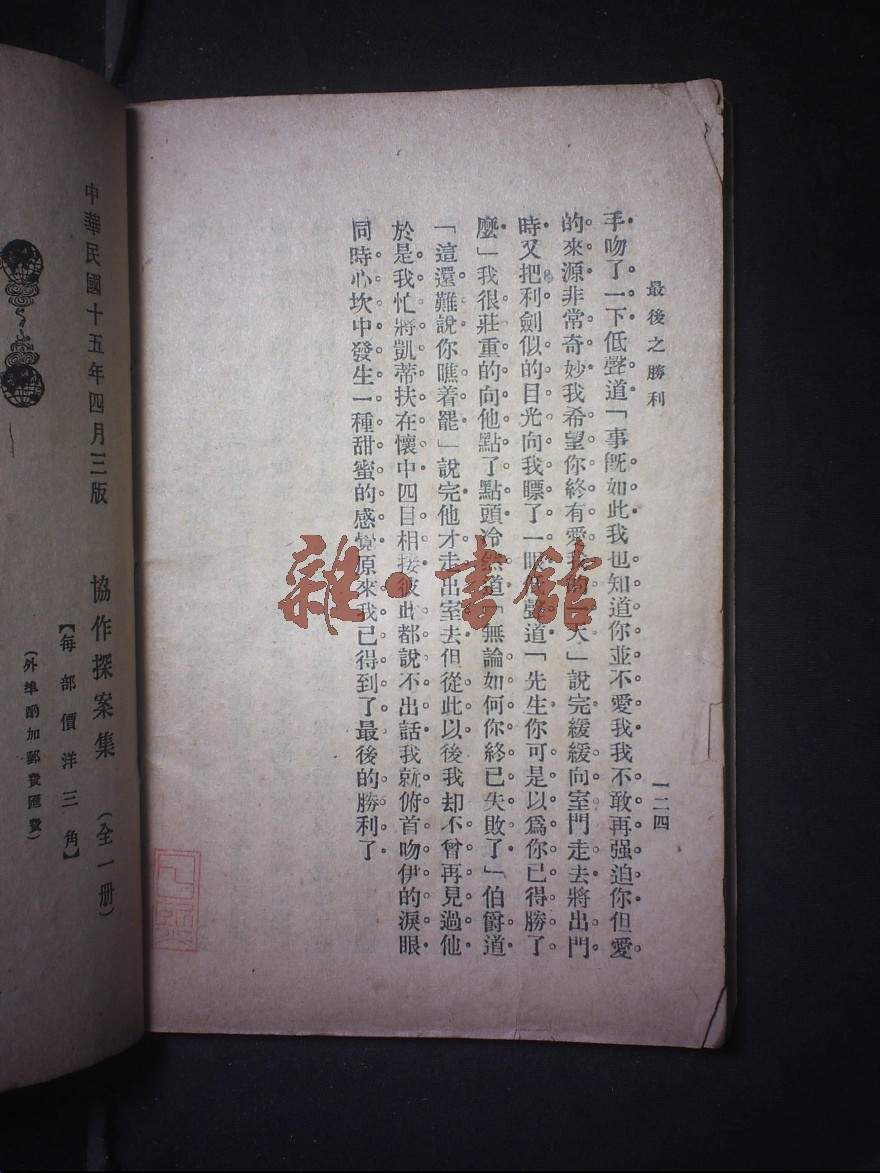 最後之勝利
一二四
手吻了一下低聲道「事旣如此我也知道你並不愛我我不敢再强迫你但愛
的來源非常奇妙我希望你終有愛我的一天」說完緩緩向室門走去將出門
時又把利劍似的目光向我瞟了一眼低聲道「先生你可是以爲你已得勝了
麼」我很莊重的向他點了點頭冷然道「無論如何你終已失敗了」伯爵道
「這還難說你瞧着罷」說完他才走出室去但從此以後我却不曾再見過他
於是我忙將凱蒂扶在懷中四目相接彼此都說不出話我就俯首吻伊的淚眼
同時心坎中發生一種甜蜜的感覺原來我已得到了最後的勝利了
雜·書館
中華民國十五年四月三版
協作探案集
（全一册）
【每部價洋三角】
（外埠酌加郵費匯費）